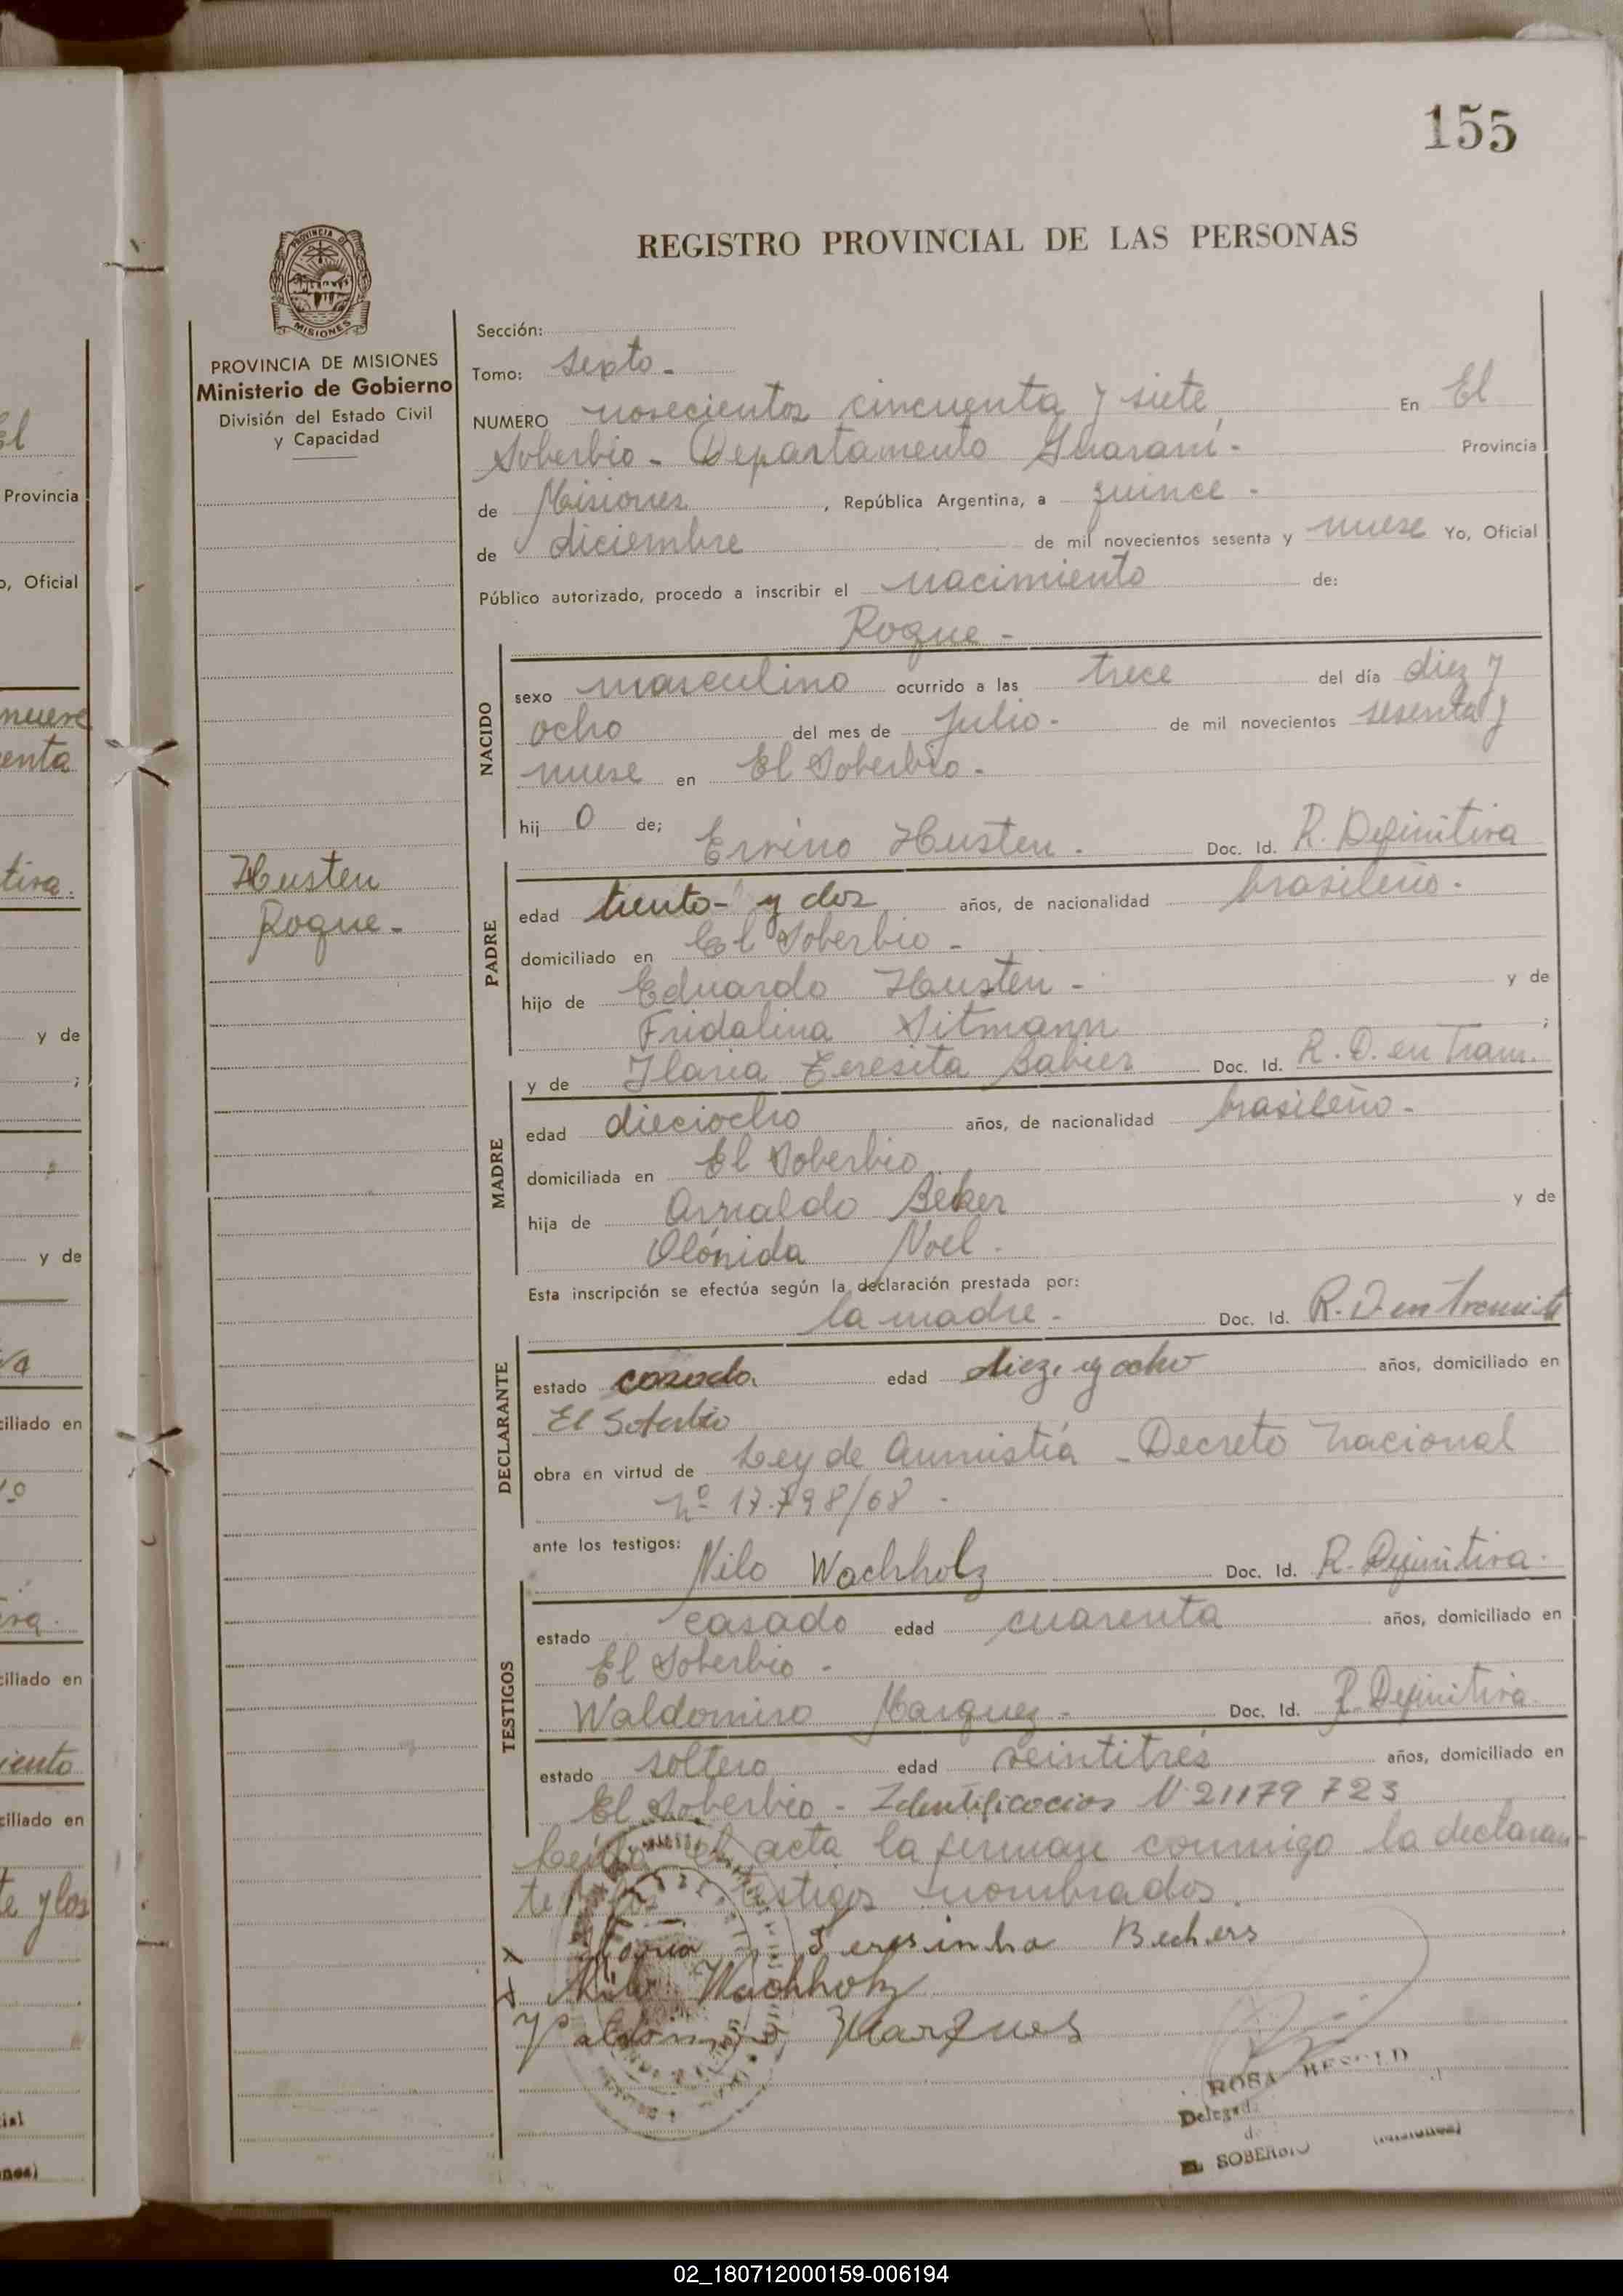 155
REGISTRO PROVINCIAL DE LAS PERSONAS
PROVINCIA DE
MISIONES
PROVINCIA DE MISIONES
Ministerio de Gobierno
División del Estado Civil
y Capacidad
Husten
Roque -
Sección:
Tomo: Sexto -
NUMERO novecientos cincuenta y siete En El
Soberbio - Departamento Guaraní - Provincia
de Misiones, República Argentina, a quince -
de diciembre de mil novecientos sesenta y nueve Yo, Oficial
Público autorizado, procedo a inscribir el nacimiento de:
Roque -
NACIDO
sexo masculino ocurrido a las trece del día diez y
ocho del mes de Julio - de mil novecientos sesenta y
nueve en El Soberbio -
hij o de; Ervino Husten - Doc. Id. R. Definitiva
PADRE
edad treinta y dos años, de nacionalidad brasileño -
domiciliado en El Soberbio -
hijo de Eduardo Husten - y de
Fridalina Sitmann ;
y de Ilaria Teresita Doc. Id. R. D. en Tram.
MADRE
edad dieciocho años, de nacionalidad brasileño -
domiciliada en El Soberbio
hija de Arnaldo Beker y de
Olónida Noel -
Esta inscripción se efectúa según la declaración prestada por:
la madre - Doc. Id. R. D en Tramite
DECLARANTE
estado casada edad diez y ocho años, domiciliado en
El Soberbio
obra en virtud de Ley de Amnistía - Decreto Nacional
Nº 17.798/68 -
ante los testigos:
Nilo Wachholz Doc. Id. R. Definitiva -
TESTIGOS
estado casado edad cuarenta años, domiciliado en
El Soberbio -
Waldomiro Marquez - Doc. Id. R. Definitiva
estado soltero edad veintitres años, domiciliado en
El Soberbio - Identificacion N 21179 723
Leída el acta la firman conmigo la declaran-
te y los testigos nombrados.
Ilaria Teresinha Bechers
Nilo Wachholz
Valdomiro Marques
ROSA
Delegad
de
EL SOBERBIO (Misiones)
El
Provincia
o, Oficial
nueve
enta
tiva.
y de
;
y de
ciliado en
ciliado en
iento
ciliado en
te y los
02_180712000159-006194